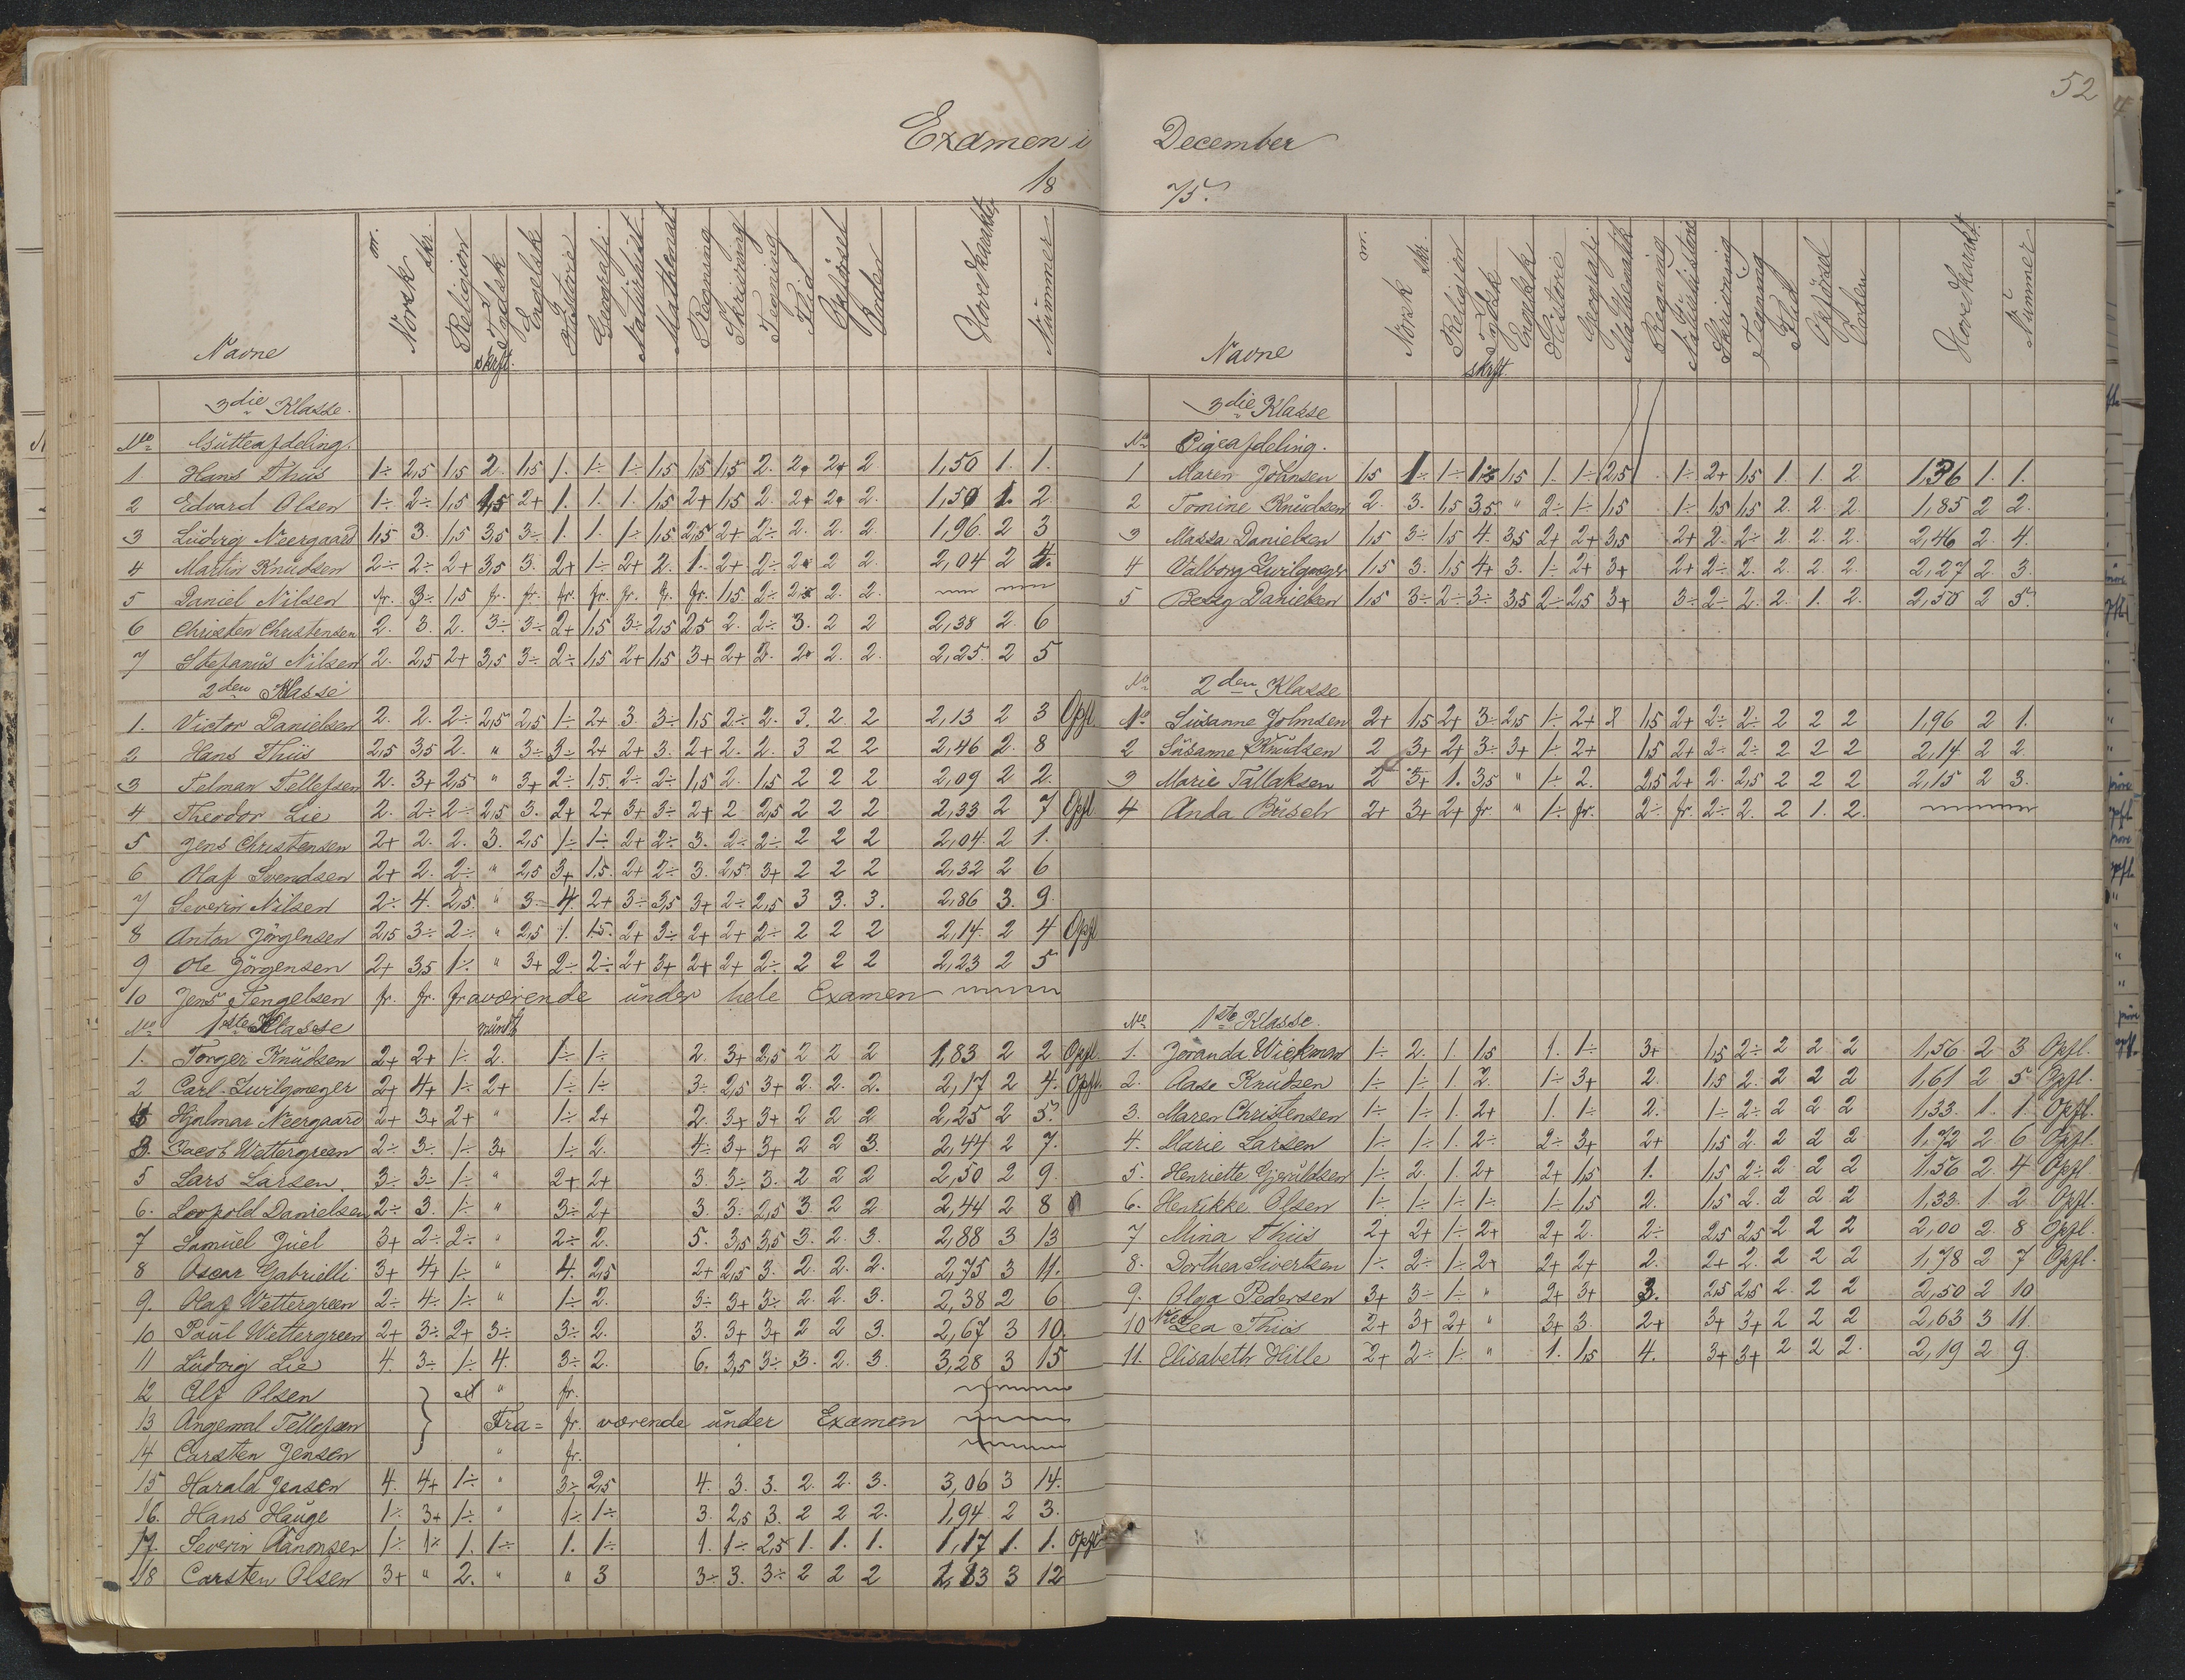 52
Examen i December
1875.
Navne Norsk m. skr. Religion Tydsk skrft. Engelsk Historie Geografi Naturhist. Mathemat. Regning Skrivning Tegning Flid Opförsel Orden Hovedkarakter Nummer
3die Klasse.
No Gutteafdeling.
1. Hans Thiis 1÷ 2,5 1,5 2. 1,5 1. 1÷ 1÷ 1,5 1,5 1,5 2. 2+ 2+ 2 1,50 1. 1.
2 Edvard Olsen 1÷ 2÷ 1,5 1,5 2+ 1. 1. 1. 1,5 2+ 1,5 2. 2+ 2+ 2. 1,50 1. 2.
3 Ludvig Neergaard 1,5 3. 1,5 3,5 3÷ 1. 1. 1÷ 1,5 2,5 2+ 2÷ 2. 2. 2. 1,96 2 3
4 Martin Knudsen 2÷ 2÷ 2+ 3,5 3. 2+ 1÷ 2+ 2. 1. 2+ 2÷ 2+ 2 2. 2,04 2 4.
5 Daniel Nilsen fr. 3÷ 1,5 fr. fr. fr. fr. fr. fr. fr. 1,5 2÷ 2+ 2. 2.
6 Christen Christensen 2. 3. 2. 3÷ 3÷ 2+ 1,5 3÷ 2,5 2,5 2. 2÷ 3. 2 2 2,38 2. 6
7 Stefanus Nilsen 2. 2,5 2+ 3,5 3÷ 2÷ 1,5 2+ 1,5 3+ 2+ 2. 2+ 2. 2. 2,25 2 5
2den Klasse
1. Victor Danielsen 2. 2. 2÷ 2,5 2,5 1÷ 2+ 3. 3÷ 1,5 2÷ 2. 3. 2. 2 2,13 2 3 Opfl.
2 Hans Thiis 2,5 3,5 2. " 3÷ 3÷ 2+ 2+ 3. 2+ 2. 2. 3 2 2 2,46 2. 8
3 Telman Tellefsen 2. 3+ 2,5 " 3+ 2÷ 1,5. 2÷ 2÷ 1,5 2. 1,5 2 2 2 2,09 2 2.
4 Theodor Lie 2. 2÷ 2÷ 2,5 3. 2+ 2+ 3+ 3÷ 2+ 2 2,5 2 2 2 2,33 2 7 Opfl
5 Jens Christensen 2+ 2. 2. 3. 2,5 1÷ 1÷ 2+ 2÷ 3. 2÷ 2÷ 2 2 2 2,04. 2 1.
6 Olaf Svendsen 2+ 2. 2÷ " 2,5 3+ 1.5. 2+ 2÷ 3. 2,5 3+ 2 2 2 2,32 2 6
7 Severin Nilsen 2÷ 4. 2,5. " 3. 4. 2+ 3÷ 3,5 3+ 2÷ 2,5 3 3. 3. 2,86 3. 9.
8 Anton Jörgensen 2,5 3÷ 2÷ " 2,5 1. 1.5. 2+ 3÷ 2+ 2+ 2÷ 2 2 2 2,14. 2 4 Opfl
9 Ole Jörgensen 2+ 3,5 1÷ " 3+ 2÷ 2÷ 2+ 3+ 2+ 2+ 2÷ 2 2 2 2,23 2 5
10 Jens Tengelsen fr. fr. fraværende under hele Examen
No 1ste Klasse mündt
1. Torger Knudsen 2+ 2+ 1÷ 2. 1÷ 1÷ 2. 3+ 2,5 2 2 2 1,83 2 2 Opfl.
2 Carl Zwilgmeyer 2+ 4+ 1÷ 2+ 1÷ 1÷ 3÷ 2,5 3+ 2. 2. 2. 2,17 2 4. Opfl.
4 Hjalmar Neergaard 2+ 3+ 2+ " 1÷ 2+ 2. 3+ 3+ 2 2 2 2,25 2 5.
3. Jacob Wettergreen 2÷ 3÷ 1÷ 3+ 1÷ 2. 4÷ 3+ 3+ 2 2 3. 2,44 2 7.
5 Lars Larsen. 3÷ 3÷ 1÷ " 2+ 2+ 3. 3÷ 3. 2 2 2 2,50 2 9.
6. Leopold Danielsen 2÷ 3. 1÷ " 3÷ 2+ 3. 3. 2,5 3 2 2 2,44 2 8
7 Samuel Juel 3+ 2÷ 2÷ " 2÷ 2. 5. 3,5 3,5 3. 2. 3. 2,88 3 13
8 Oscar Gabrielli 3+ 4+ 1÷ " 4. 2,5 2+ 2,5 3. 2. 2. 2. 2,75 3 11.
9. Olaf Wettergreen 2÷ 4÷ 1÷ " 1÷ 2. 3÷ 3+ 3÷ 2. 2. 3. 2,38 2 6
10 Paul Wettergreen 2+ 3÷ 2+ 3÷ 3÷ 2. 3. 3+ 3+ 2 2 3. 2,67 3 10.
11 Ludvig Lie 4. 3÷ 1÷ 4. 3÷ 2. 6. 3,5 3÷ 3. 2. 3. 3,28 3 15
12 Alf Olsen " fr.
13 Angemal Tellefsen Fra= fr. værende under Examen
14 Carsten Jensen " fr.
15 Harald Jensen 4. 4+ 1÷ " 3÷ 2,5 4. 3. 3. 2. 2. 3. 3,06 3 14.
16. Hans Hauge 1÷ 3+ 1÷ " 1÷ 1÷ 3. 2,5 3. 2 2 2. 1,94 2 3.
17. Severin Aanonsen 1÷ 1÷ 1. 1÷ 1. 1÷ 1. 1÷ 2,5 1. 1. 1. 1,17 1. 1. Opfl.
18 Carsten Olsen 3+ " 2. " " 3 3÷ 3. 3÷ 2 2 2 3 12
Navne Norsk m. skr. Religion Tydsk skrft. Engelsk Historie Geografi Mathematik Regning Naturhistorie Skrivning Tegning Flid Opförsel Orden Hovedkarakt. Nummer
3die Klasse
No Pigeafdeling.
1 Maren Johnsen 1,5 1÷ 1÷ 1÷ 1,5 1. 1÷ 2,5 1÷ 2+ 1,5 1. 1. 2 1,36 1. 1.
2 Tomine Knudsen 2. 3. 1,5 3,5 " 2÷ 1÷ 1,5 1÷ 1,5 1,5 2. 2. 2. 1,85 2 2.
3 Massa Danielsen 1,5 3÷ 1,5 4. 3,5 2+ 2+ 3,5 2+ 2. 2÷ 2. 2. 2. 2,46 2. 4.
4 Valborg Zwilgmeyer 1,5 3. 1,5 4+ 3. 1÷ 2+ 3+ 2+ 2÷ 2. 2. 2. 2. 2,27 2. 3.
5 Bessy Danielsen 1,5 3÷ 2÷ 3÷ 3,5 2÷ 2,5 3+ 3÷ 2÷ 2. 2. 1. 2. 2,50 2 5.
No 2den Klasse
1. Susanne Johnsen 2+ 1,5 2+ 3÷ 2,5 1÷ 2+ 1,5 2+ 2÷ 2÷ 2 2 2 1,96 2 1.
2 Susanne Knudsen 2 3+ 2+ 3÷ 3+ 1÷ 2+ 1,5 2+ 2÷ 2÷ 2 2 2 2,14. 2 2.
3 Marie Tallaksen 2 3+ 1. 3,5 " 1÷ 2. 2,5 2+ 2. 2,5 2 2 2 2,15 2 3.
4 Anda Busch 2+ 3+ 2+ fr. " 1÷ fr. 2÷ fr. 2÷ 2. 2 1. 2.
No 1ste Klasse.
1. Joranda Wickman 1÷ 2. 1. 1,5 1. 1÷ 3+ 1,5 2÷ 2 2 2 1,56 2 3 Opfl.
2. Aase Knudsen 1÷ 1÷ 1. 2. 1÷ 3+ 2. 1,5 2. 2 2 2 1,61 2 5 Opfl.
3. Maren Christensen 1÷ 1÷ 1. 2+ 1. 1÷ 2. 1÷ 2÷ 2 2 2 1,33. 1. 1. Opfl.
4. Marie Larsen 1÷ 1÷ 1. 2÷ 2÷ 3+ 2+ 1,5 2. 2 2 2 1,72 2 6 Opfl.
5. Henriette Gjeruldsen 1÷ 2. 1. 2+ 2+ 1,5 1. 1,5 2÷ 2 2 2 1,56 2. 4. Opfl.
6. Henrikke Olsen 1÷ 1÷ 1÷ 1÷ 1÷ 1,5 2. 1,5 2. 2 2 2 1,33. 1. 2. Opfl.
7 Mina Thiis 2+ 2+ 1÷ 2+ 2+ 2. 2÷ 2,5 2,5 2 2 2 2,00 2. 8 Opfl.
8. Dorthea Sivertsen 1÷ 2÷ 1÷ 2+ 2+ 2+ 2. 2+ 2. 2 2 2 1,78 2 7 Opfl.
9. Olga Pedersen 3+ 3÷ 1÷ " 2+ 3+ 3. 2,5 2,5 2. 2 2 2,50 2 10
10 Lea Thiis 2+ 3+ 2+ " 3+ 3. 2+ 3+ 3+ 2 2 2 2,63 3 11.
11. Elisabeth Hille 2+ 2÷ 1÷ " 1. 1,5 4. 3+ 3+ 2 2 2. 2,19 2 9.